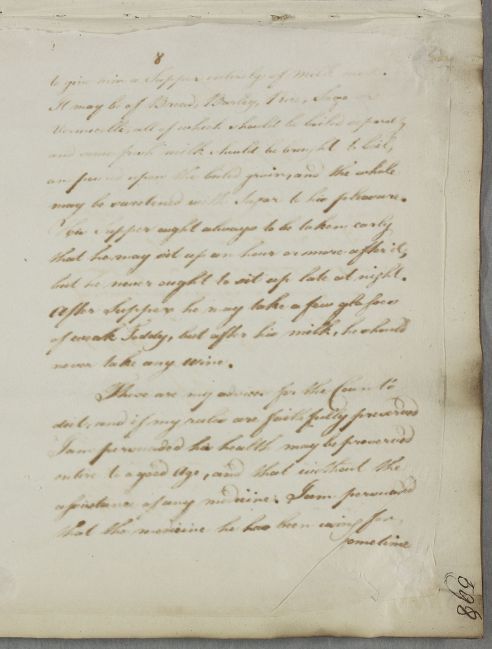 8
to give him a Supper entirely of Milk meat.
It may be of Bread, Barley, Rice, Sago or
Vermicelli, all of which should be boiled apart,
and some fresh milk should be brought to boil,
and poured upon the boiled grain, and the whole
may be sweetened with Sugar to his pleasure.
This Supper ought always to be taken early
that he may sit up an hour or more after it,
but he never ought to sit up late at night.
After Supper he may take a few glasses
of weak Toddy, but after his milk, he should
never take any wine.
These are my advices for the Count's
diet, and if my rules are faithfully preserved
I am perswaded his health may be preserved
entire to a good Age, and that without the
assistance of any medicine. I am perswaded
that the medicine he has been using for
sometime
898